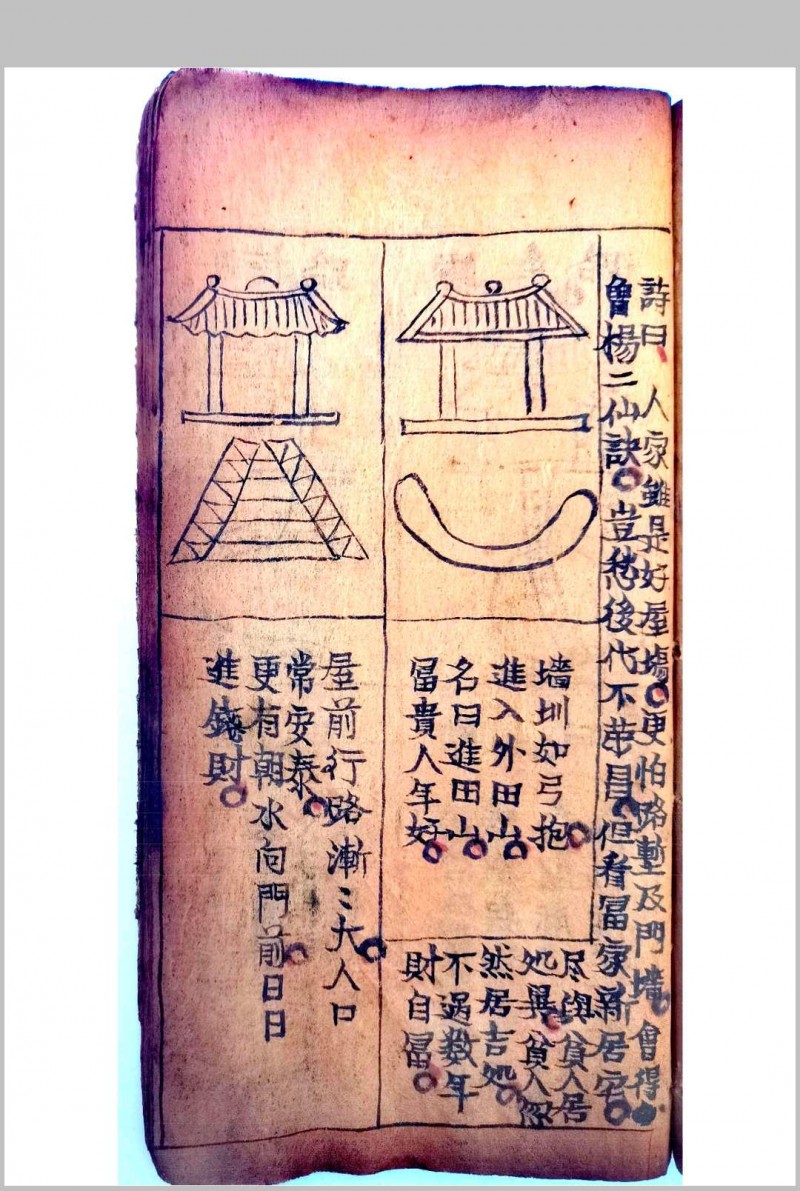 詩曰人家雖是好屋塲更怕路塹及門墻會得
曾楊二仙訣豈愁後代不荣昌但看冨家新居宅
尽與貧人居
处異貧人
然居吉处
不過数年
財自冨
墙圳如弓抱
進入外田山
名曰進田山
冨貴人年好
屋前行路漸〻大人口
常安泰
更有朝水向門前日日
進錢財